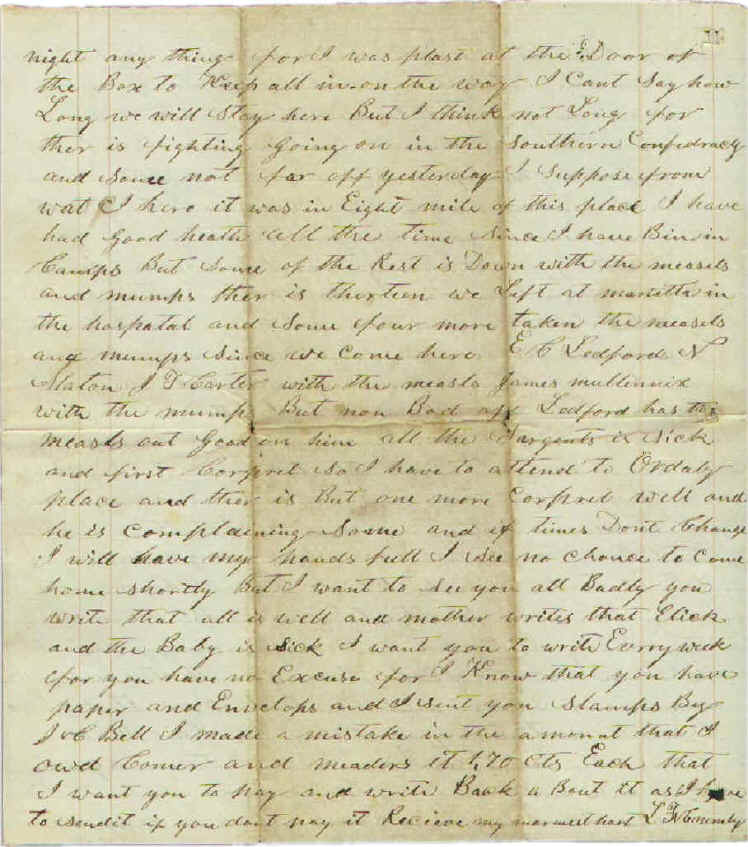 night any thing for I was plast at the Door of
the Box to Keep all in on the way I Cant Say how
Long we will Stay here But I think not Long for
ther is fighting going on in the Southern Confedracy
and Some not far off yesterday I Suppose from
wat I here it was in Eight mile of this place I have
had good heath all the time Since I have Bin in
Camps But Some of the Rest is Down with the measels
and mumps ther is thirteen we Left at maretta in
the hospatal and Some four more taken the measels
and mumps Since we Come here E C Ledford N
Slaton J T Carter with the measls James mullennix
with the mumps But non Bad off Ledford has the
measls out good on him all the Sargents is Sick
and first Corpret So I have to attend to Ordaly
place and ther is But one more Corpret well and
he is Complaining Some and if times Dont Change
I will have my hands full I See no chance to Come
home shortly But I want to See you all Badly you
write that all is well and mother writes that Elick
and the Baby is Sick I want you to write Evry week
for you have no Excuse for I Know that you have
paper and Envelops and I Sent you Stamps By
J C Bell I made a mistake in the amount that I
owd Comer and meaders it 4,70 cts Each that
I want you to pay and write Back a Bout it as I have
to Send it if you dont pay it Recieve my warmest hart L